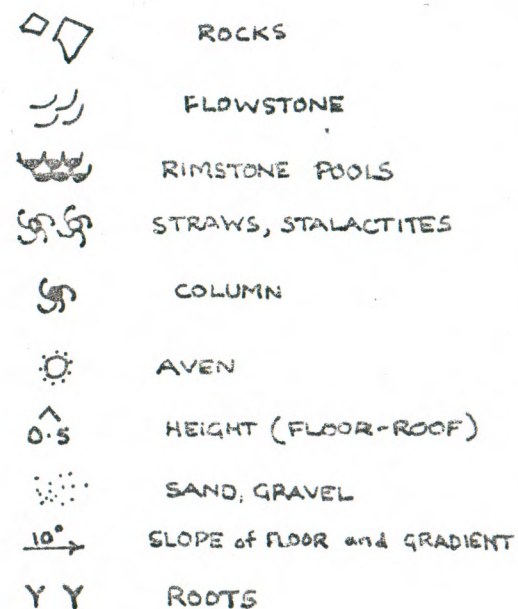 ROCKS
FLOWSTONE
RIMSTONE POOLS
STRAWS, STALACTITES
COLUMN
AVEN
0.5 HEIGHT (FLOOR-ROOF)
SAND, GRAVEL
10° SLOPE of FLOOR and GRADIENT
ROOTS